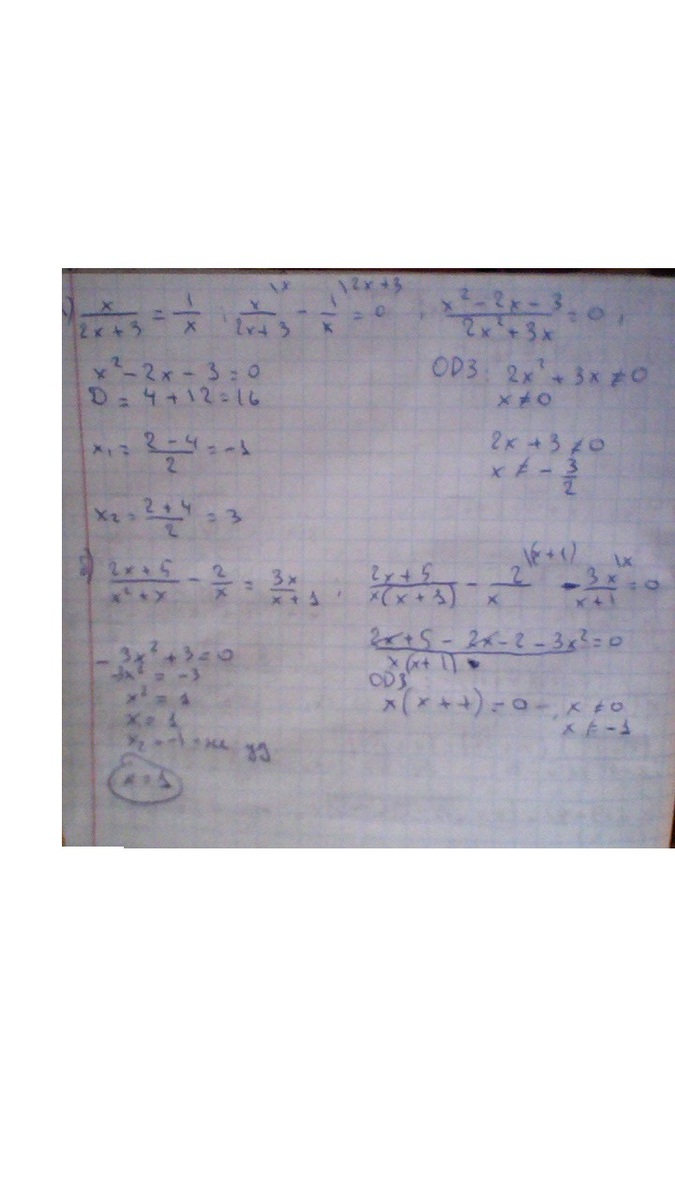 x/(2x+3) = 1/x ; x/(2x+3) \x - 1/x \2x+3 = 0 ; (x² - 2x - 3)/(2x² + 3x) = 0 ;
x² - 2x - 3 = 0
D = 4 + 12 = 16
x₁ = (2 - 4)/2 = -1
x₂ = (2 + 4)/2 = 3
ОДЗ: 2x² + 3x ≠ 0
x ≠ 0
2x + 3 ≠ 0
x ≠ - 3/2
б) (2x+5)/(x²+x) - 2/x = 3x/(x+1) ; (2x+5)/(x(x+1)) - 2/x \(x+1) - 3x/(x+1) \x = 0
(2x+5 - 2x - 2 - 3x²)/(x(x+1)) = 0
- 3x² + 3 = 0
-3x² = -3
x² = 1
x = 1
x₂ = -1 - не уд
x = 1
ОДЗ
x(x+1) = 0 - , x ≠ 0
x ≠ -1